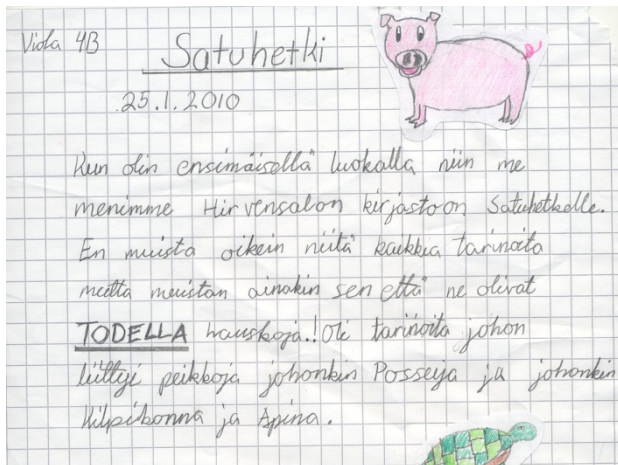 Viola 4B
Satuhetki
25.1.2010
Kun olin ensimäisellä luokalla niin me
menimme Hirvensalon kirjastoon Satuhetkelle.
En muista oikein niitä kaikkia tarinoita
mutta muistan ainakin sen että ne olivat
TODELLA hauskoja.! Oli tarinoita johon
liittyi peikkoja johonkin Posseija ja johonkin
Kilpikonna ja Apina.